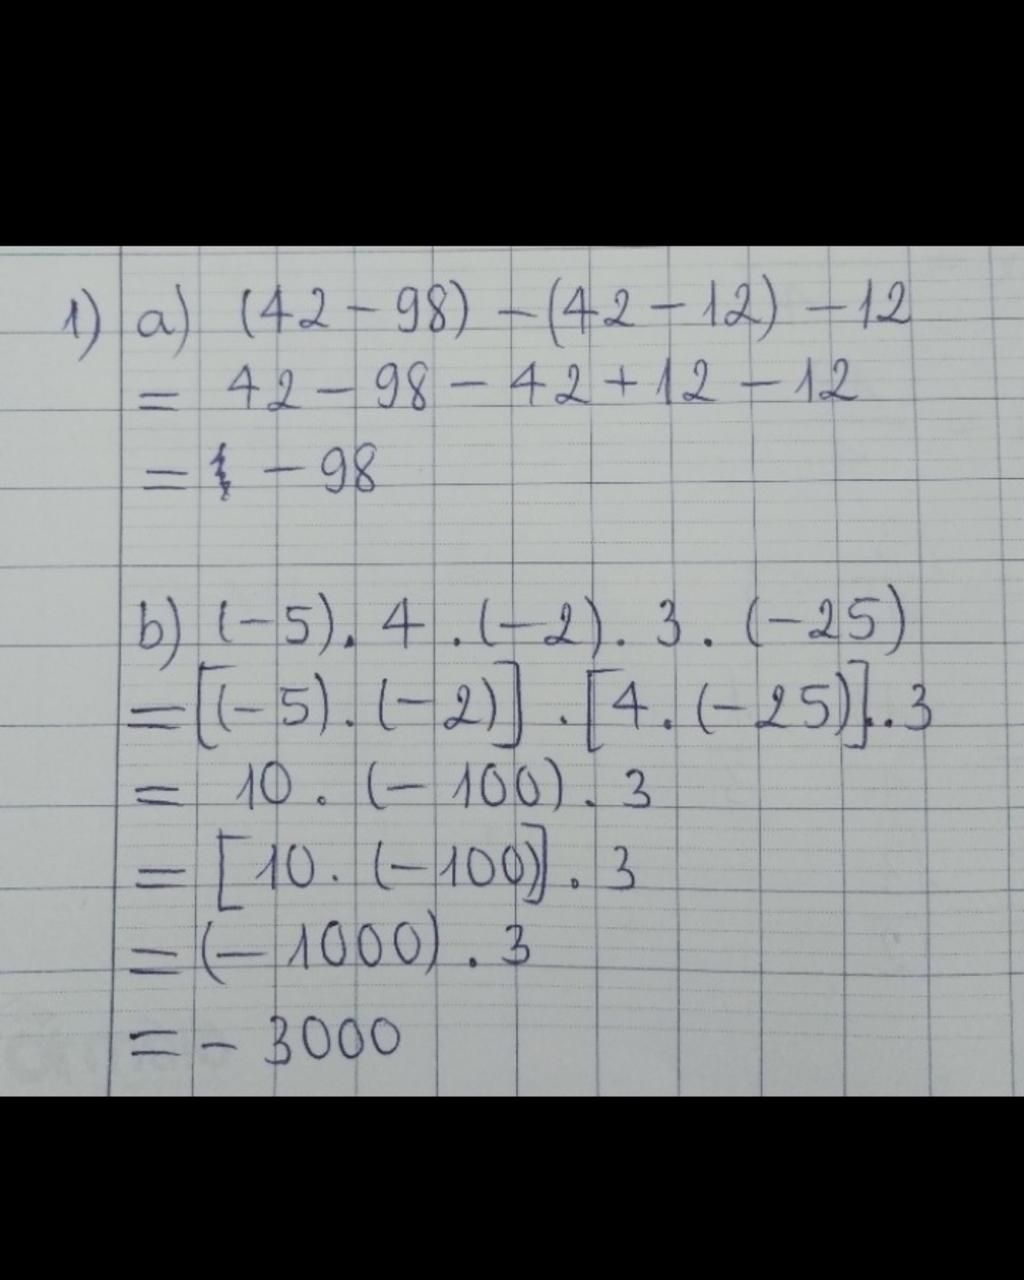 1) a) (42 - 98) - (42 - 12) - 12
= 42 - 98 - 42 + 12 - 12
= - 98
b) (-5) . 4 . (-2) . 3 . (-25)
= [(-5) . (-2)] . [4 . (-25)] . 3
= 10 . (-100) . 3
= [10 . (-100)] . 3
= (-1000) . 3
= - 3000